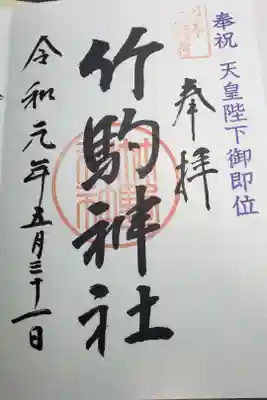 奉祝 天皇陛下御即位
奉拝
竹駒神社
令和元年五月三十一日